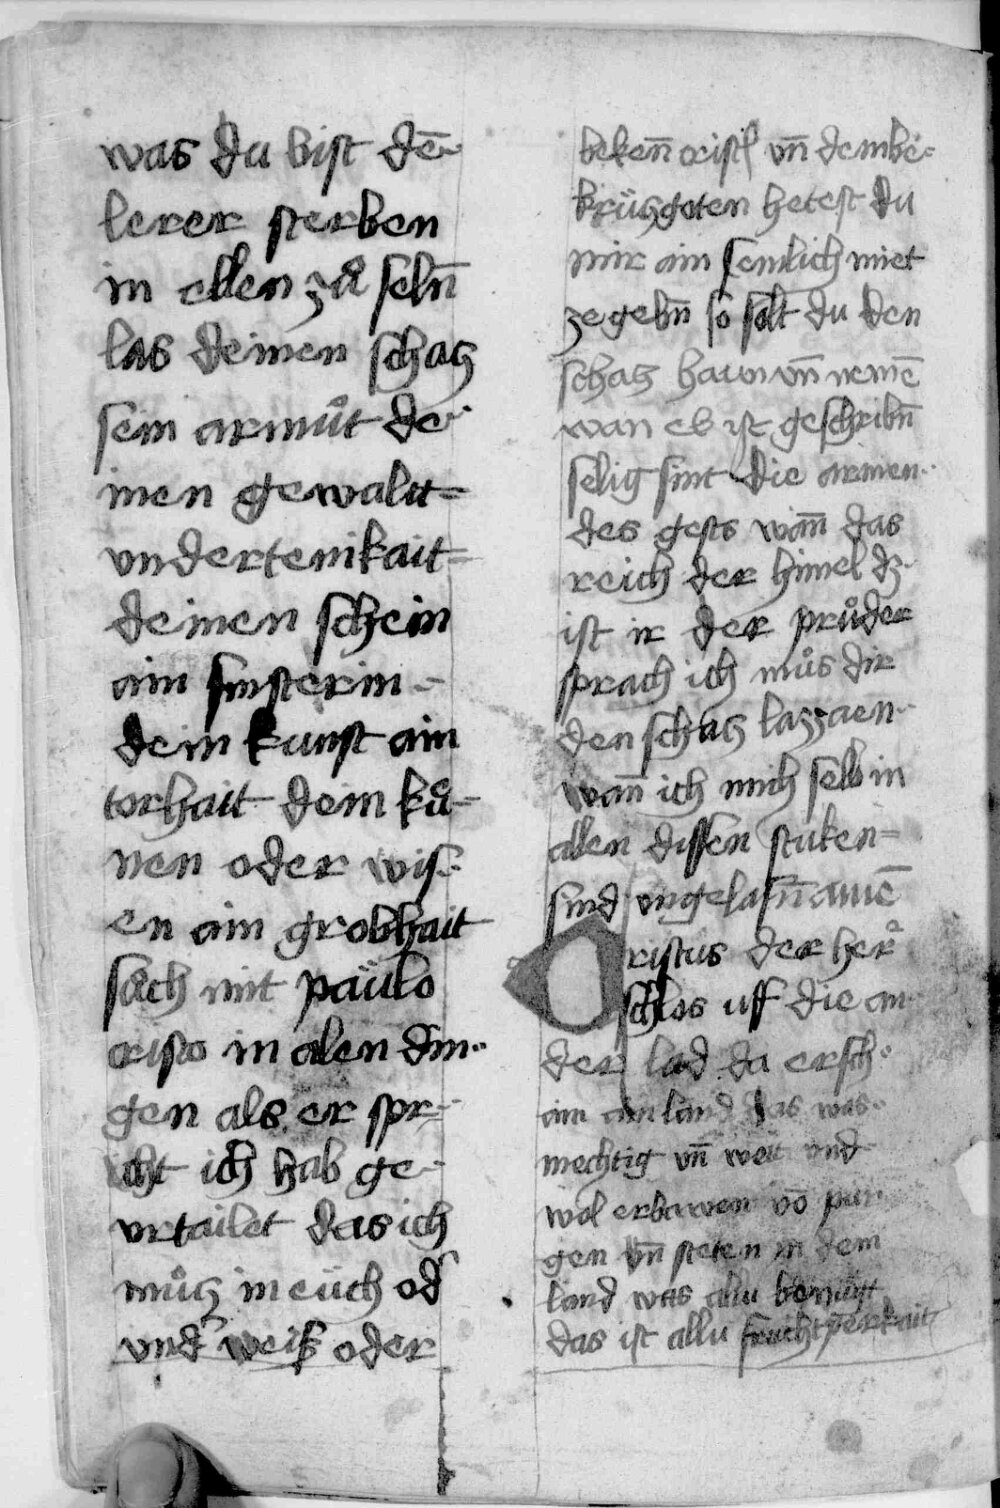 was du bist dē-
lerer sterben
in ellen zů seln̄
las deinen schatz
sein armůt de-
inen gewalt-
vndertenikait-
deinen schein
ain finsterin-
dein kunst ain
torhait dein ků-
nen oder wis-
en ain grobhait
sůch mit paůlo
cristo in alen din-
gen als er spr-
icht ich hab ge-
vrtailet das ich
nutz in eüch od
vnd weiß oder
bekenn̄ cristū vn̄ den be-
krützgoten hetest du
mir ain semlich miet
ze gebn̄ so solt du den
schatz haun vn̄ nemē
wan eß ist geschribn̄
selig sint die armen-
des gests wan̄ das
reich der himel dz-
ist ir der průder
sprach ich můs dir
den schatz lazzen-
wan̄ ich mich selb in
allen dissen stuken-
find vngelasn̄ amē
Cristus der her
schlos uff die an-
der lad da ersch-
ain ain land das was-
mechtig vn̄ weit vnd
wol erbawen vō pur-
gen vn̄ steten in dem
land was allu
das ist allu fruchtperkait